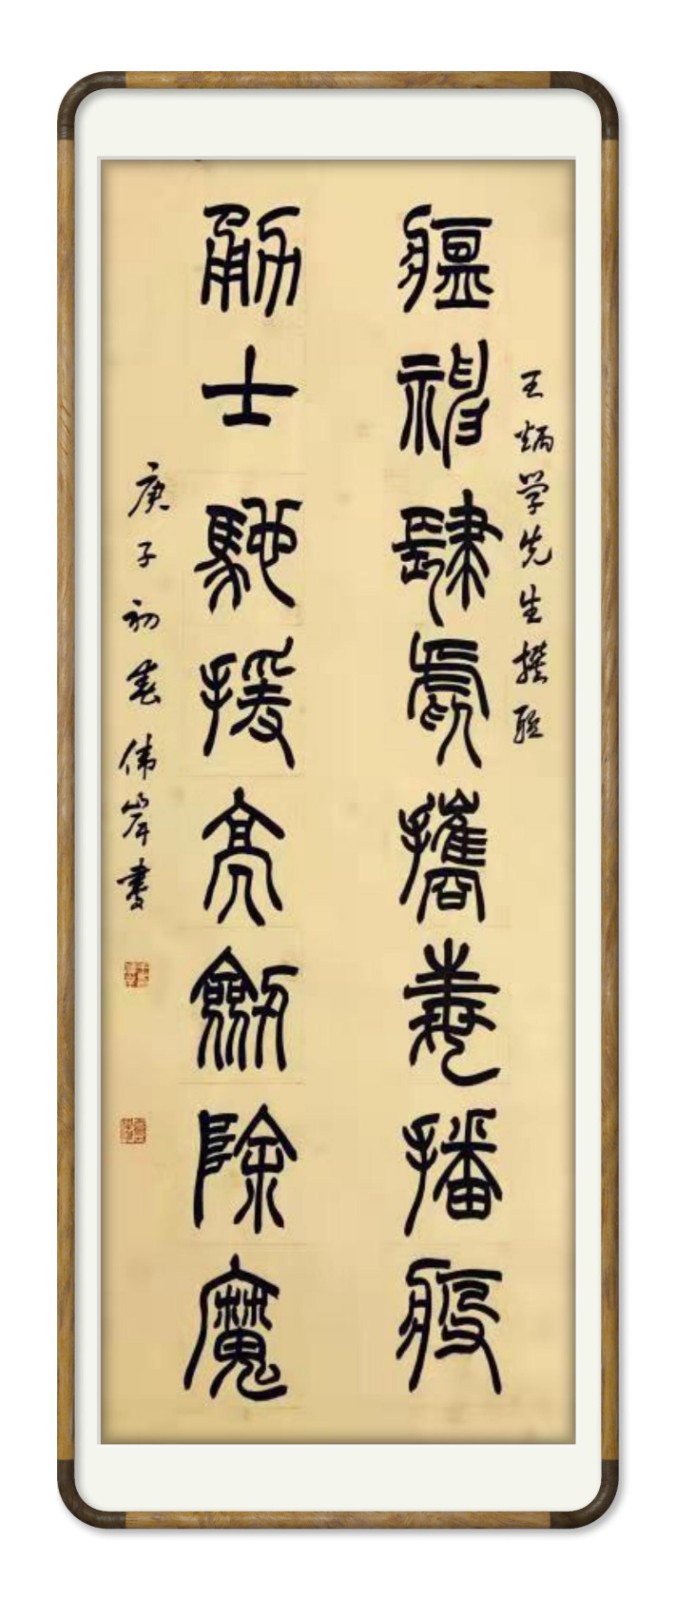 王炳学先生撰联
瘟神肆虐攜毒播疫
勇士馳援亮劍除魔
庚子初春伟岸书